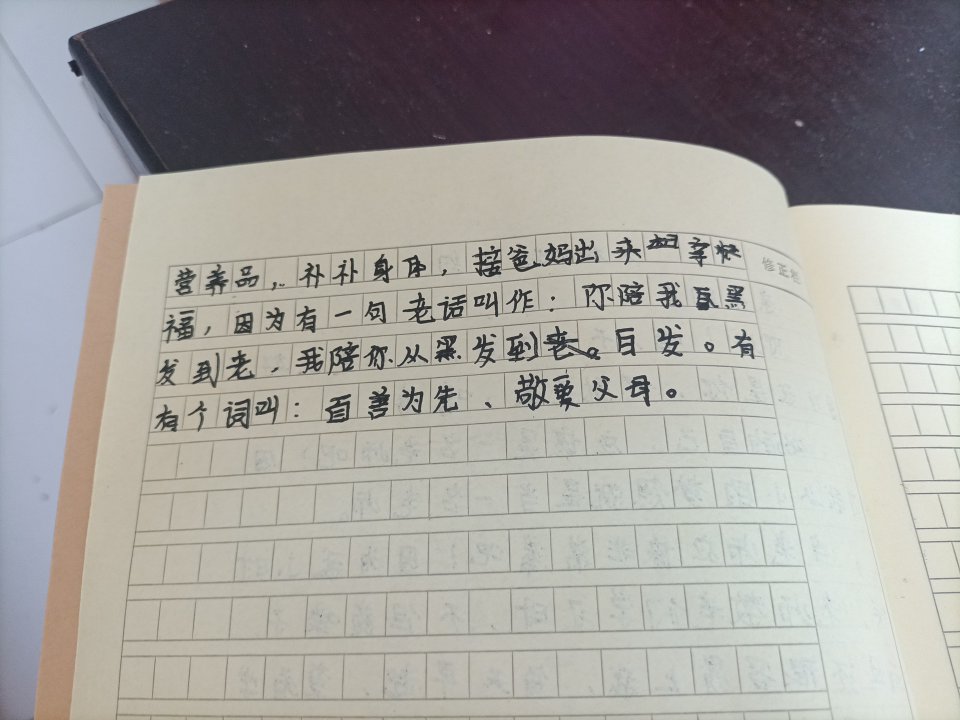 营养品，补补身体，接爸妈出来 幸
修正栏
福，因为有一句老话叫作：你陪我 黑
发到老，我陪你从黑发到老。白发。有
有个词叫：百善为先、敬爱父母。